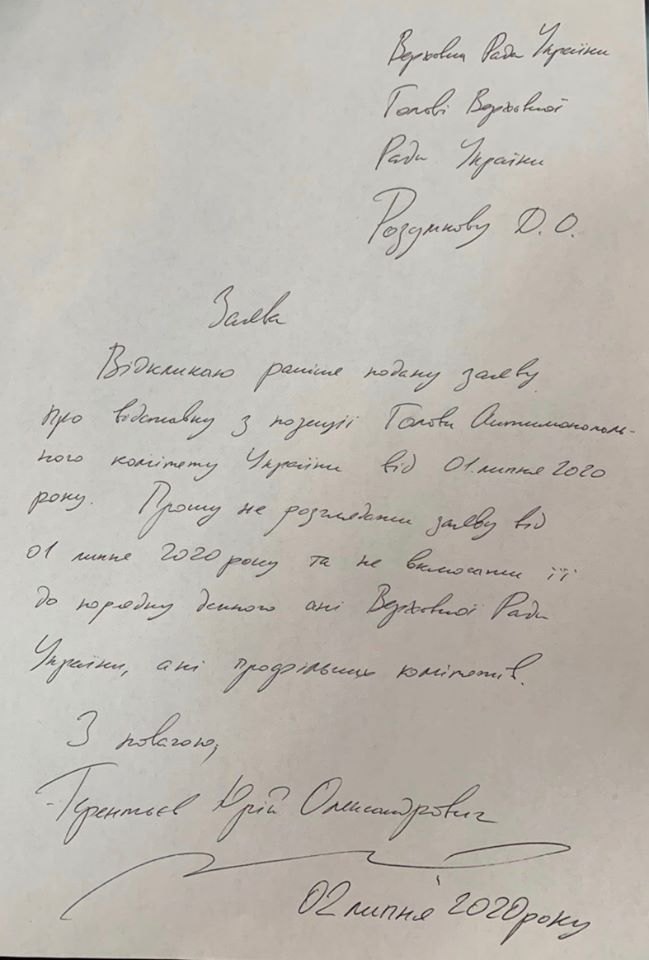 Верховна Рада України
Голові Верховної
Ради України
Разумкову Д.О.
Заява
Відкликаю раніше подану заяву
про відставку з позиції Голови Антимонополь-
ного комітету України від 01.липня 2020
року. Прошу не розглядати заяву від
01 липня 2020 року та не вносити її
до порядку денного ані Верховної Ради
України, ані профільних комітетів.
З повагою,
Терентьєв Юрій Олександрович
02 липня 2020 року